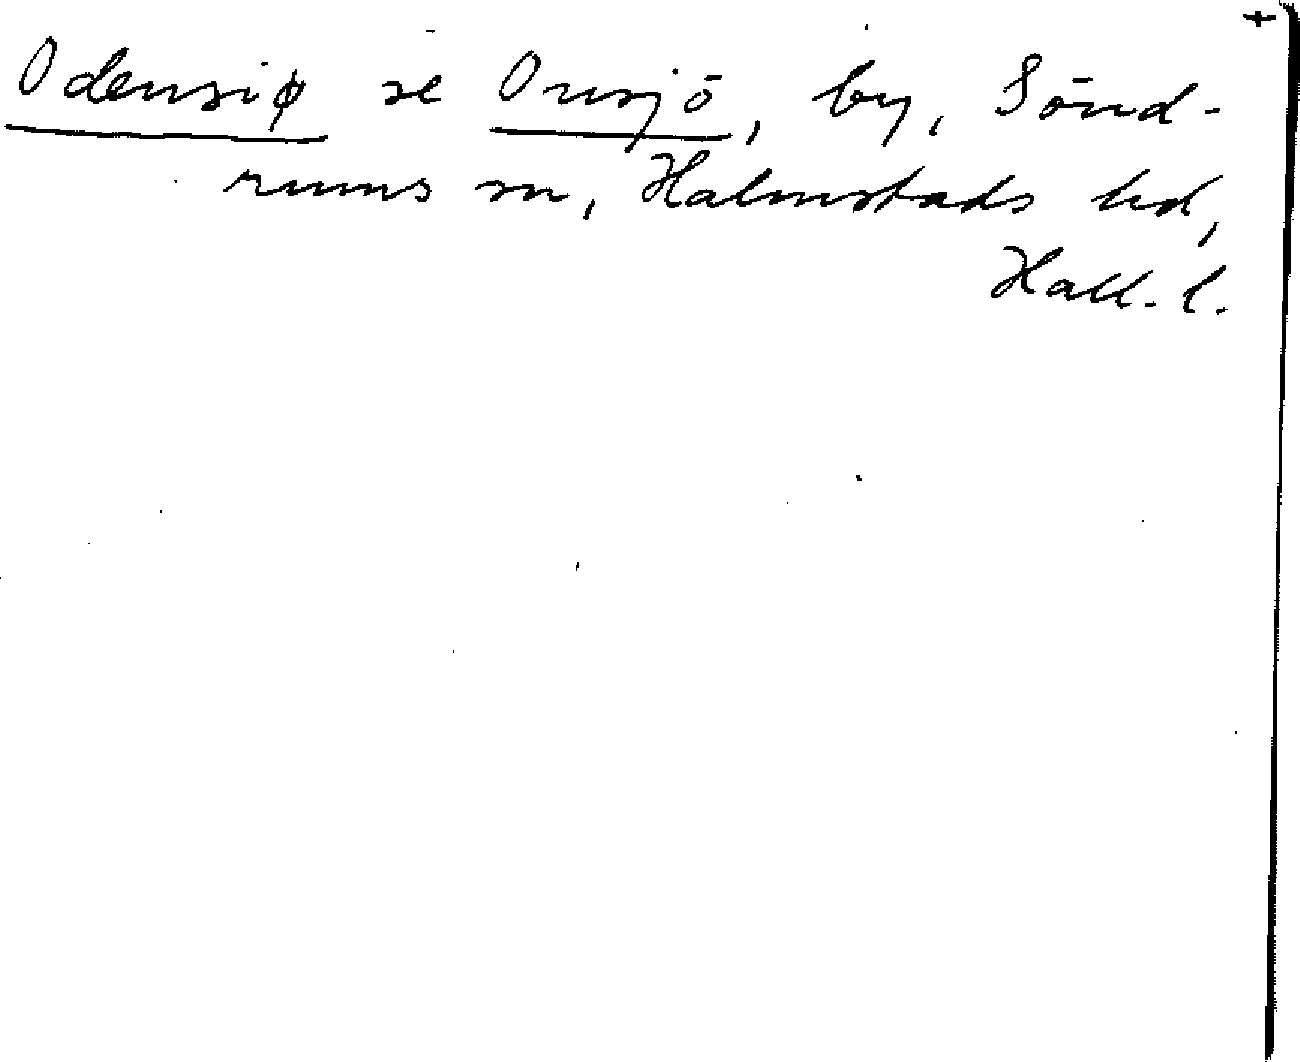 Odensiø se Onsjö, by, Sönd-
rums sn, Halmstads hd,
Hall. l.